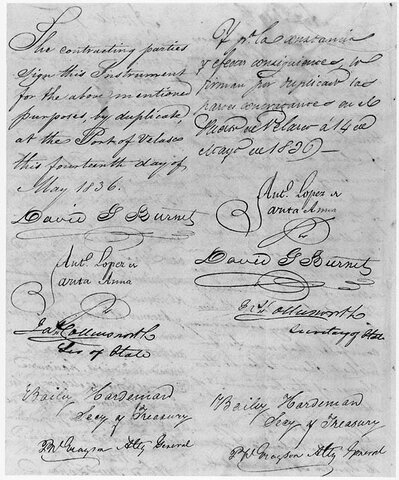 The contracting parties
sign this Instrument
for the above mentioned
purposes, by duplicate,
at the Port of Velasco
this fourteenth day of
May 1836.
David G Burnet
Ant. Lopez de
Santa Anna
Jas Collinsworth
Sec of State
Baily Hardeman
Secy of Treasury
P W Grayson Atty General
Y pa. la constancia
y efectos consiguientes, lo
firman por duplicado las
partes contratantes en el
Puerto de Velasco á 14 de
Mayo de 1836—
Ant. Lopez de
Santa Anna
David G Burnet
Jas Collinsworth
Secretary of State
Baily Hardeman
Secy of Treasury
P W Grayson Atty General